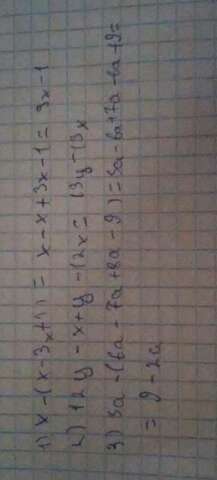 1) x-(x-3x+1) = x-x+3x-1 = 3x-1
2) 12y-x+y-12x = 13y-13x
3) 3a-(6a-7a+8a-9)=3a-6a+7a-8a+9=
= 9-2a